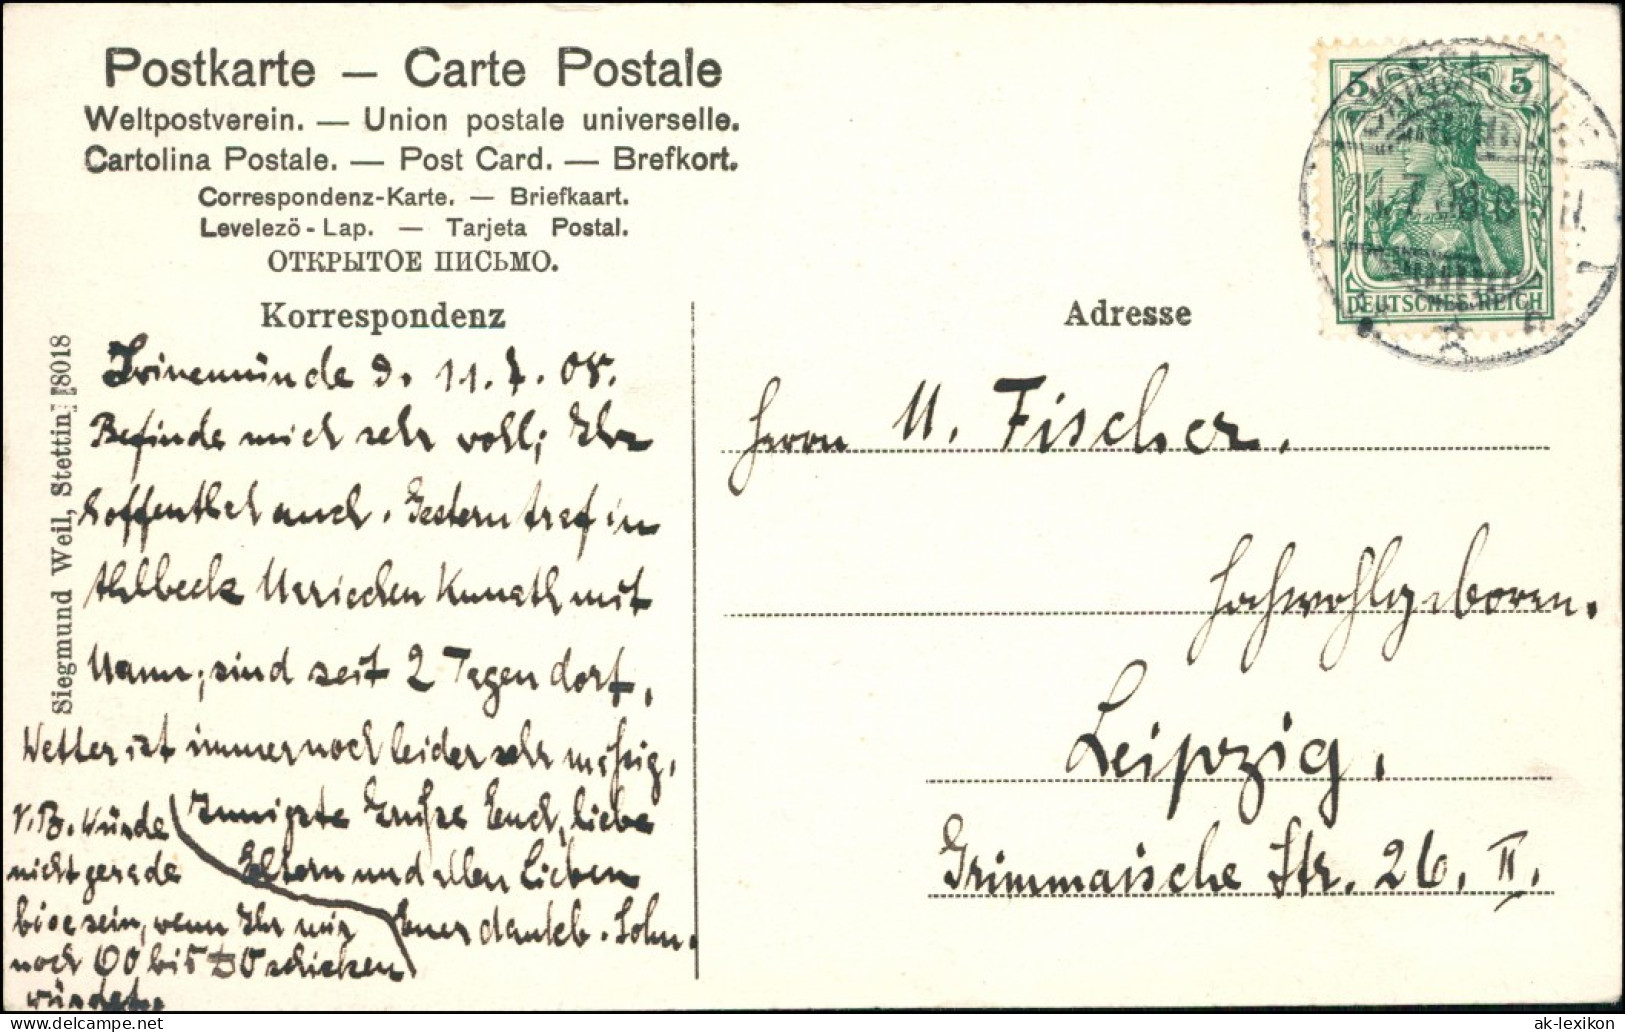 Postkarte — Carte Postale
Weltpostverein. — Union postale universelle.
Cartolina Postale. — Post Card. — Brefkort.
Correspondenz-Karte. — Briefkaart.
Levelezö-Lap. — Tarjeta Postal.
ОТКРЫТОЕ ПИСЬМО.
Korrespondenz
Adresse
Siegmund Weil, Stettin. [8018
5 5
DEUTSCHES REICH
11.7.08
d. 11.7.08.
Befinde mich sehr wohl; Ihr
hoffentlich auch. Gestern traf in
Ahlbeck Mariechen Kunath mit
Mann; sind seit 2 Tagen dort.
Wetter ist immer noch leider sehr mäßig.
Innigste Grüße Euch, liebe
Eltern und allen Lieben
Euer dankb. Sohn.
P.S. Würde
nicht gerade
böse sein, wenn Ihr mir
noch 60 bis 80 schicken
würdet.
Herrn M. Fischer.
Hochwohlgeboren.
Leipzig.
Grimmaische Str. 26. II.
ak-lexikon